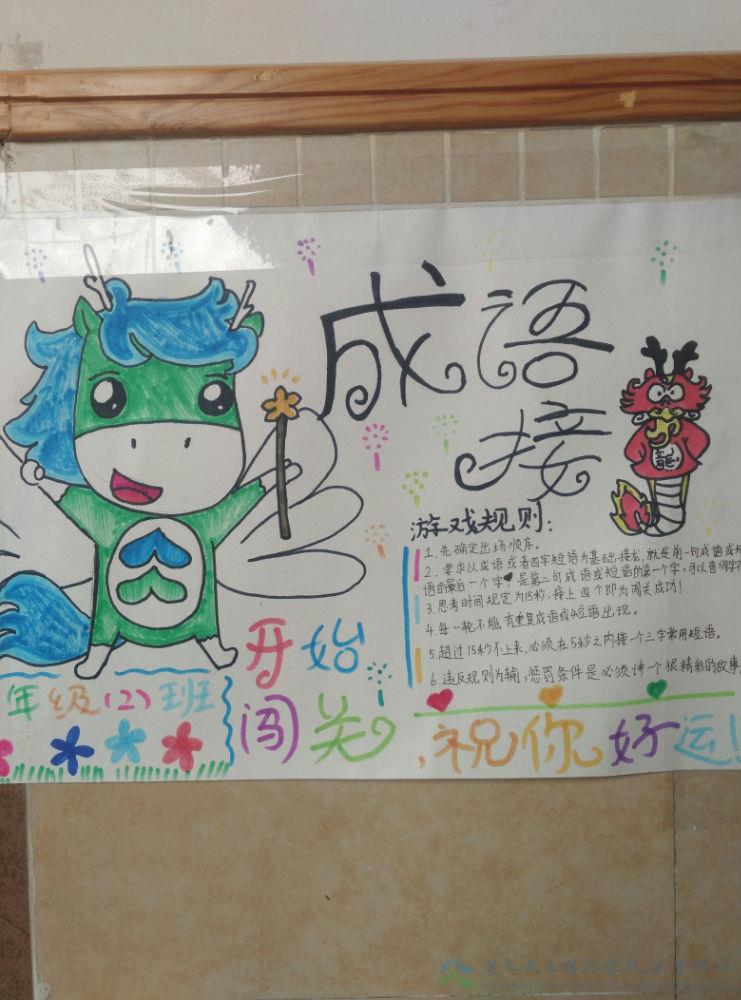 成语
接
龍
游戏规则:
1. 先确定出场顺序。
2. 要求以成语或者四字短语为基础接龙,就是前一句成语或短
语的最后一个字,是第二句成语或短语的第一个字,可以音同字不
3. 思考时间规定为15秒,接上四个即为闯关成功!
4. 每一轮不能有重复成语或短语出现。
5. 超过15秒不上来,必须在5秒之内接一个三字常用短语。
6. 违反规则为输,惩罚条件是必须讲一个很精彩的故事
年级(2)班
开始
闯关,祝你好运!